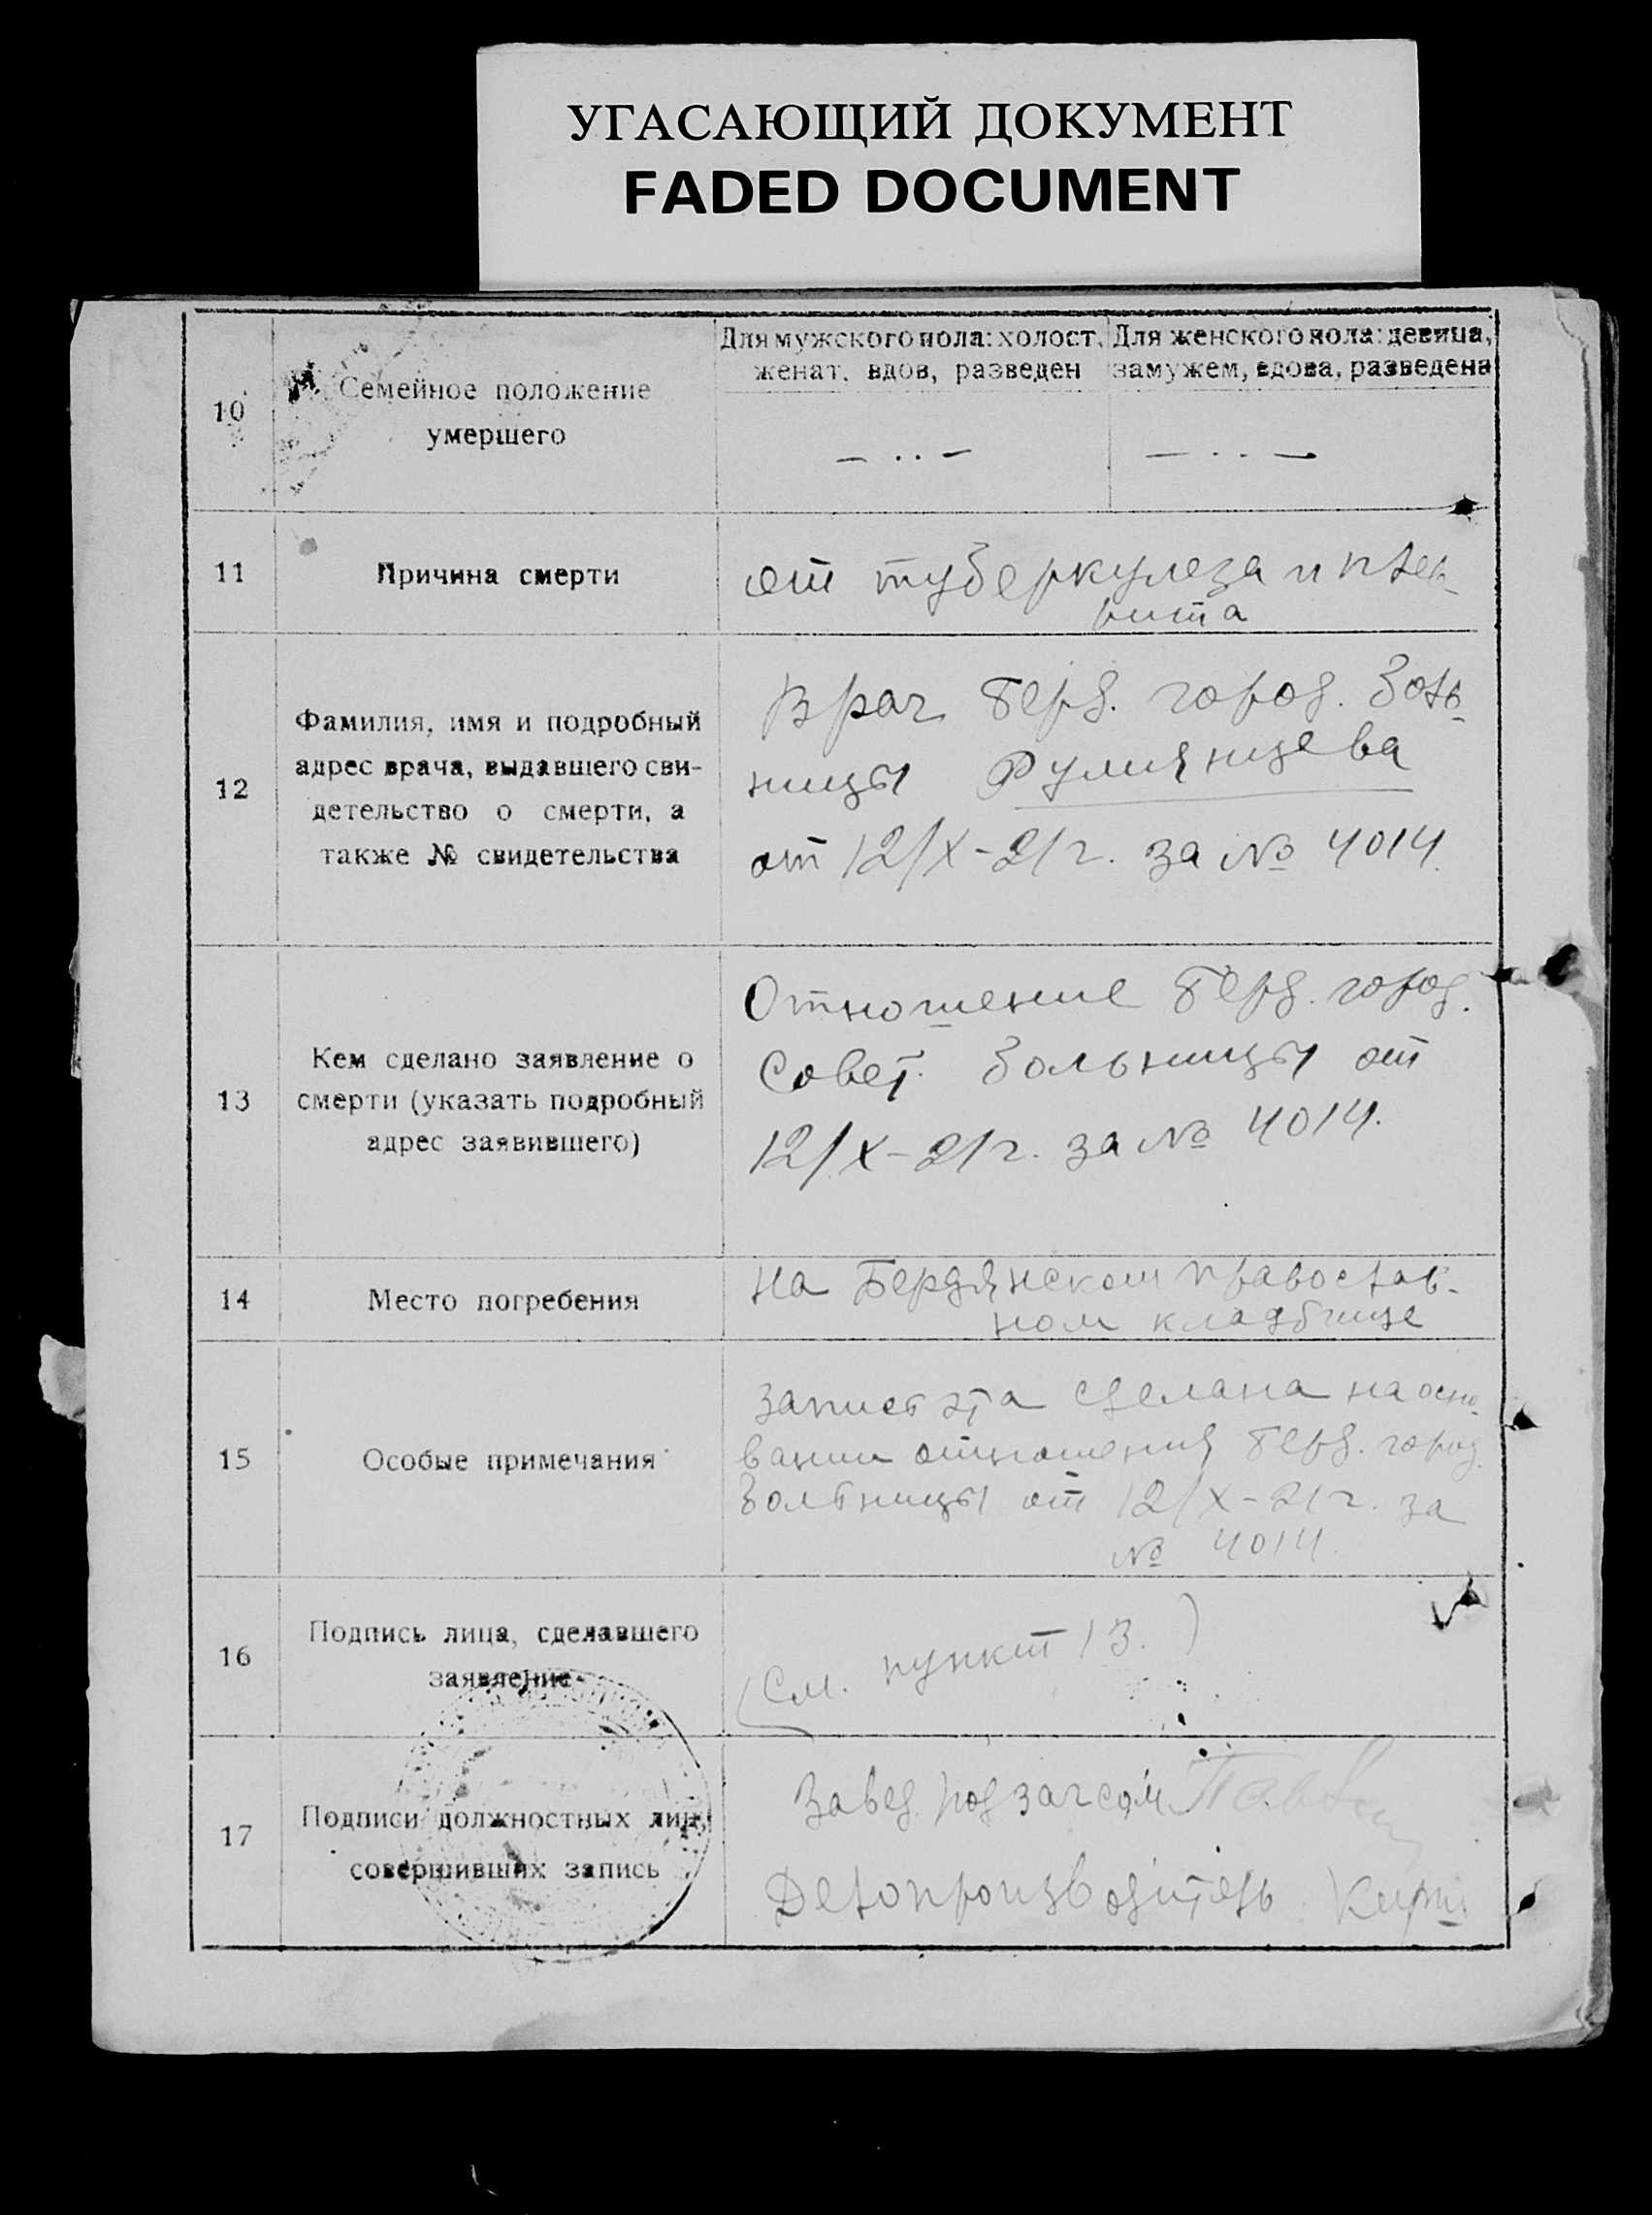 УГАСАЮЩИЙ ДОКУМЕНТ
FADED DOCUMENT
10
Семейное положение
умершего
Для мужского пола: холост,
женат, вдов, разведен
Для женского пола: девица,
замужем, вдова, разведена
— · · —
— · · —
11
Причина смерти
от туберкулеза и плев-
рита
12
Фамилия, имя и подробный
адрес врача, выдавшего сви-
детельство о смерти, а
также № свидетельства
Врач Берд. город. боль-
ницы Румянцева
от 12/X-21 г. за № 4014.
13
Кем сделано заявление о
смерти (указать подробный
адрес заявившего)
Отношение Берд. город.
Совет. больницы от
12/X-21 г. за № 4014.
14
Место погребения
На Бердянском православ-
ном кладбище
15
Особые примечания
Запись эта сделана на осно-
вании отношения Берд. город.
больницы от 12/X-21 г. за
№ 4014.
16
Подпись лица, сделавшего
заявление
(См. пункт 13.)
17
Подписи должностных лиц,
совершивших запись
Завед. подзагсом
Делопроизводитель